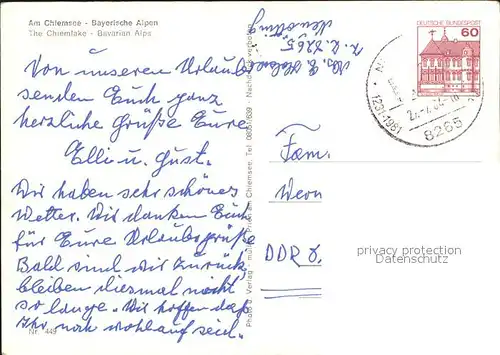 Am Chiemsee - Bayerische Alpen
The Chiemlake - Bavarian Alps
Von unseren Urlaub
senden Euch ganz
herzliche Grüße Eure
Elli u. Gust.
Wir haben sehr schönes
Wetter. Wir danken Euch
für Eure Urlaubsgrüße
Bald sind wir zurück
bleiben diesmal nicht
so lange. Wir hoffen daß
Ihr noch wohlauf seid.
Nr. 449
Neuötting
8265
DEUTSCHE BUNDESPOST
60
1231-1981
8265
Fam.
Wern
DDR
privacy protection
Datenschutz